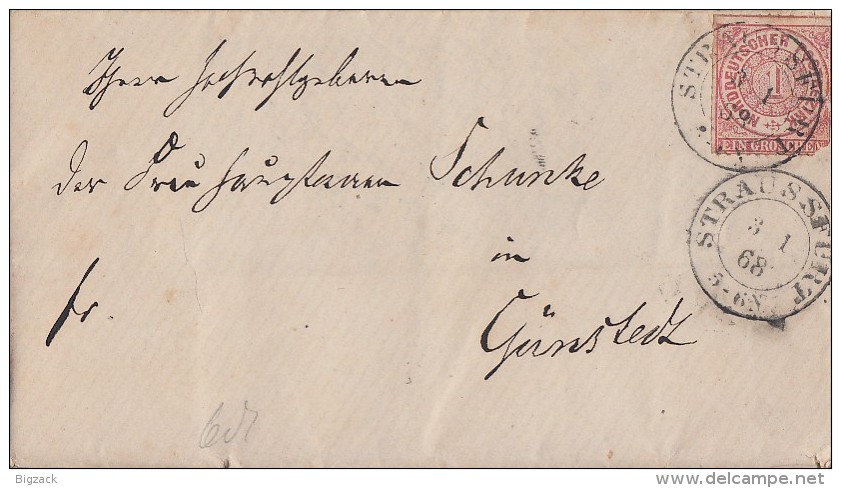 Ihrer Hochwohlgeboren
der Frau Hauptmann Schunke
in
Günstedt
fr.
NORDDEUTSCHER POSTBEZIRK
1
EIN GROSCHEN
STRAUSSFURT
3 1
68
STRAUSSFURT
3 1
68
5-6N
Bigzack
delcampe.net